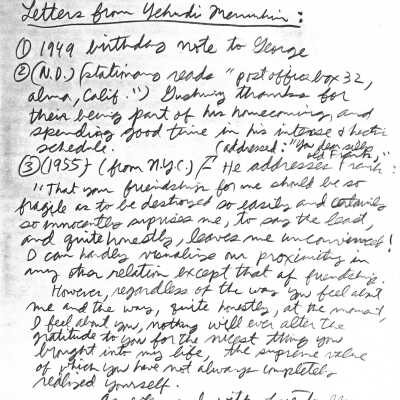 Letters from Yehudi Menuhin :
① 1949 birthday note to George
② (N.D.) (stationary reads "post office box 32,
alma, Calif.") Gushing thanks for
their being part of his homecoming, and
spending good time in his intense & hectic
schedule. (addressed: "You dear silly old Frank,"
③ (1955) (from N.Y.C.) – He addresses Frank :
"That your friendship for me should be so
fragile as to be destroyed so easily and certainly
so innocently suprises me, to say the least,
and quite honestly, leaves me unconvinced!
I can hardly visualize our proximity in
any other relation except that of friendship.
However, regardless of the way you feel about
me and the way, quite honestly, at the moment,
I feel about you, nothing will ever alter the
gratitude to you for the nicest thing you
brought into my life, the supreme value
of which you have not always completely
realized yourself.